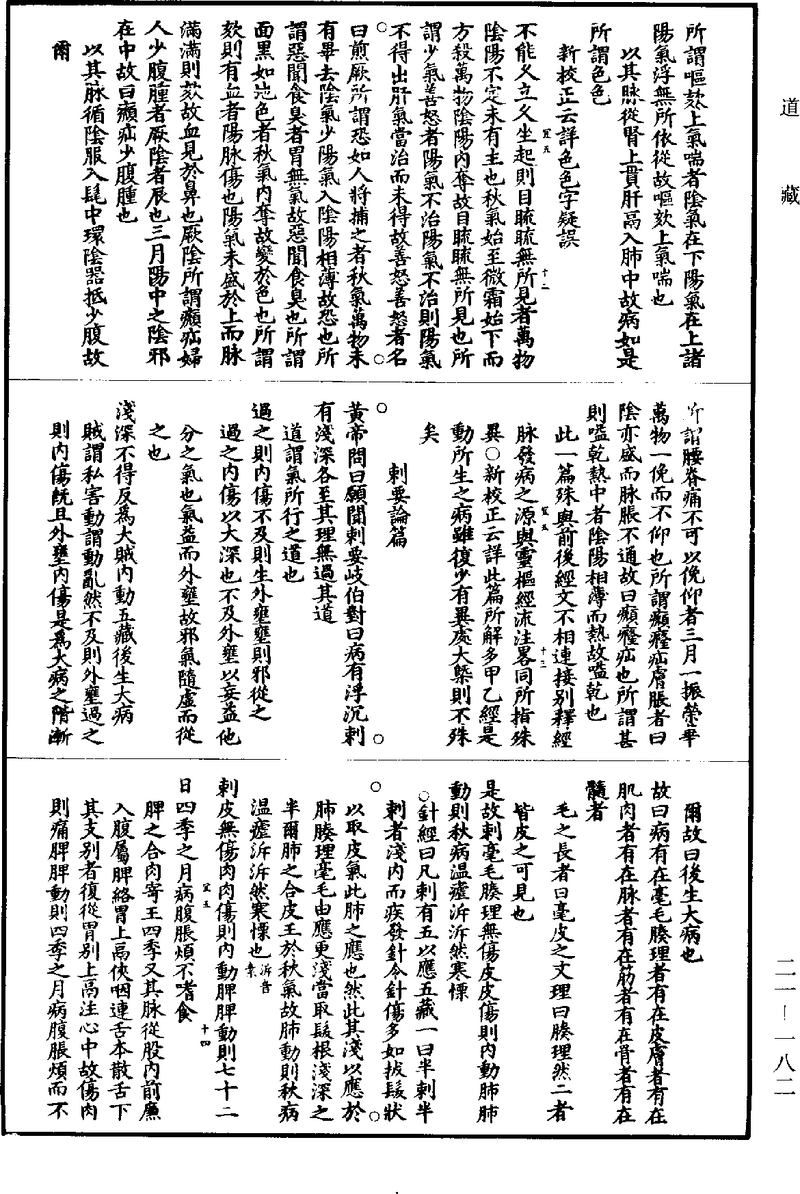 道藏
所謂嘔欬上氣喘者陰氣在下陽氣在上諸
陽氣浮無所依從故嘔欬上氣喘也
以其脉從腎上貫肝鬲入肺中故病如是
所謂色色
新校正云詳色色字疑誤
不能久立久坐起則目䀮䀮無所見者萬物
宜五
十一
陰陽不定未有主也秋氣始至微霜始下而
方殺萬物陰陽內奪故目䀮䀮無所見也所
謂少氣善怒者陽氣不治陽氣不治則陽氣
不得出肝氣當治而未得故善怒善怒者名
曰煎厥所謂恐如人將捕之者秋氣萬物未
有畢去陰氣少陽氣入陰陽相薄故恐也所
謂惡聞食臭者胃無氣故惡聞食臭也所謂
面黑如地色者秋氣內奪故變於色也所謂
欬則有血者陽脉傷也陽氣未盛於上而脉
滿滿則欬故血見於鼻也厥陰所謂癩疝婦
人少腹腫者厥陰者辰也三月陽中之陰邪
在中故曰癩疝少腹腫也
以其脉循陰股入髦中環陰器抵少腹故
爾
所謂腰脊痛不可以俛仰者三月一振榮華
萬物一俛而不仰也所謂癩癃疝膚脹者曰
陰亦盛而脉脹不通故曰癩癃疝也所謂甚
則嗌乾熱中者陰陽相薄而熱故嗌乾也
此一篇殊與前後經文不相連接別釋經
脉發病之源與靈樞經流注畧同所指殊
宜五
十二
異○新校正云詳此篇所解多甲乙經是
動所生之病雖復少有異處大槩則不殊
矣
刺要論篇
黃帝問曰願聞刺要岐伯對曰病有浮沉刺
有淺深各至其理無過其道
道謂氣所行之道也
過之則內傷不及則生外壅壅則邪從之
過之內傷以大深也不及外壅以妄益他
分之氣也氣益而外壅故邪氣隨虛而從
之也
淺深不得反為大賊內動五藏後生大病
賊謂私害動謂動亂然不及則外壅過之
則內傷既且外壅內傷是為大病之階漸
爾故曰後生大病也
故曰病有在毫毛腠理者有在皮膚者有在
肌肉者有在脉者有在筋者有在骨者有在
髓者
毛之長者曰毫皮之文理曰腠理然二者
皆皮之可見也
是故刺毫毛腠理無傷皮皮傷則內動肺肺
動則秋病溫瘧泝泝然寒慄
○針經曰凡刺有五以應五藏一曰半刺半
刺者淺內而疾發針令針傷多如拔髮狀
以取皮氣此肺之應也然此其淺以應於
肺腠理毫毛由應更淺當取髮根淺深之
半爾肺之合皮王於秋氣故肺動則秋病
溫瘧泝泝然寒慄也泝音素
刺皮無傷肉肉傷則內動脾脾動則七十二
日四季之月病腹脹煩不嗜食
宜五
十四
脾之合肉寄王四季又其脉從股內前廉
入腹屬脾絡胃上鬲俠咽連舌本散舌下
其支別者復從胃別上鬲注心中故傷肉
則痛脾脾動則四季之月病腹脹煩而不
二一—一八二